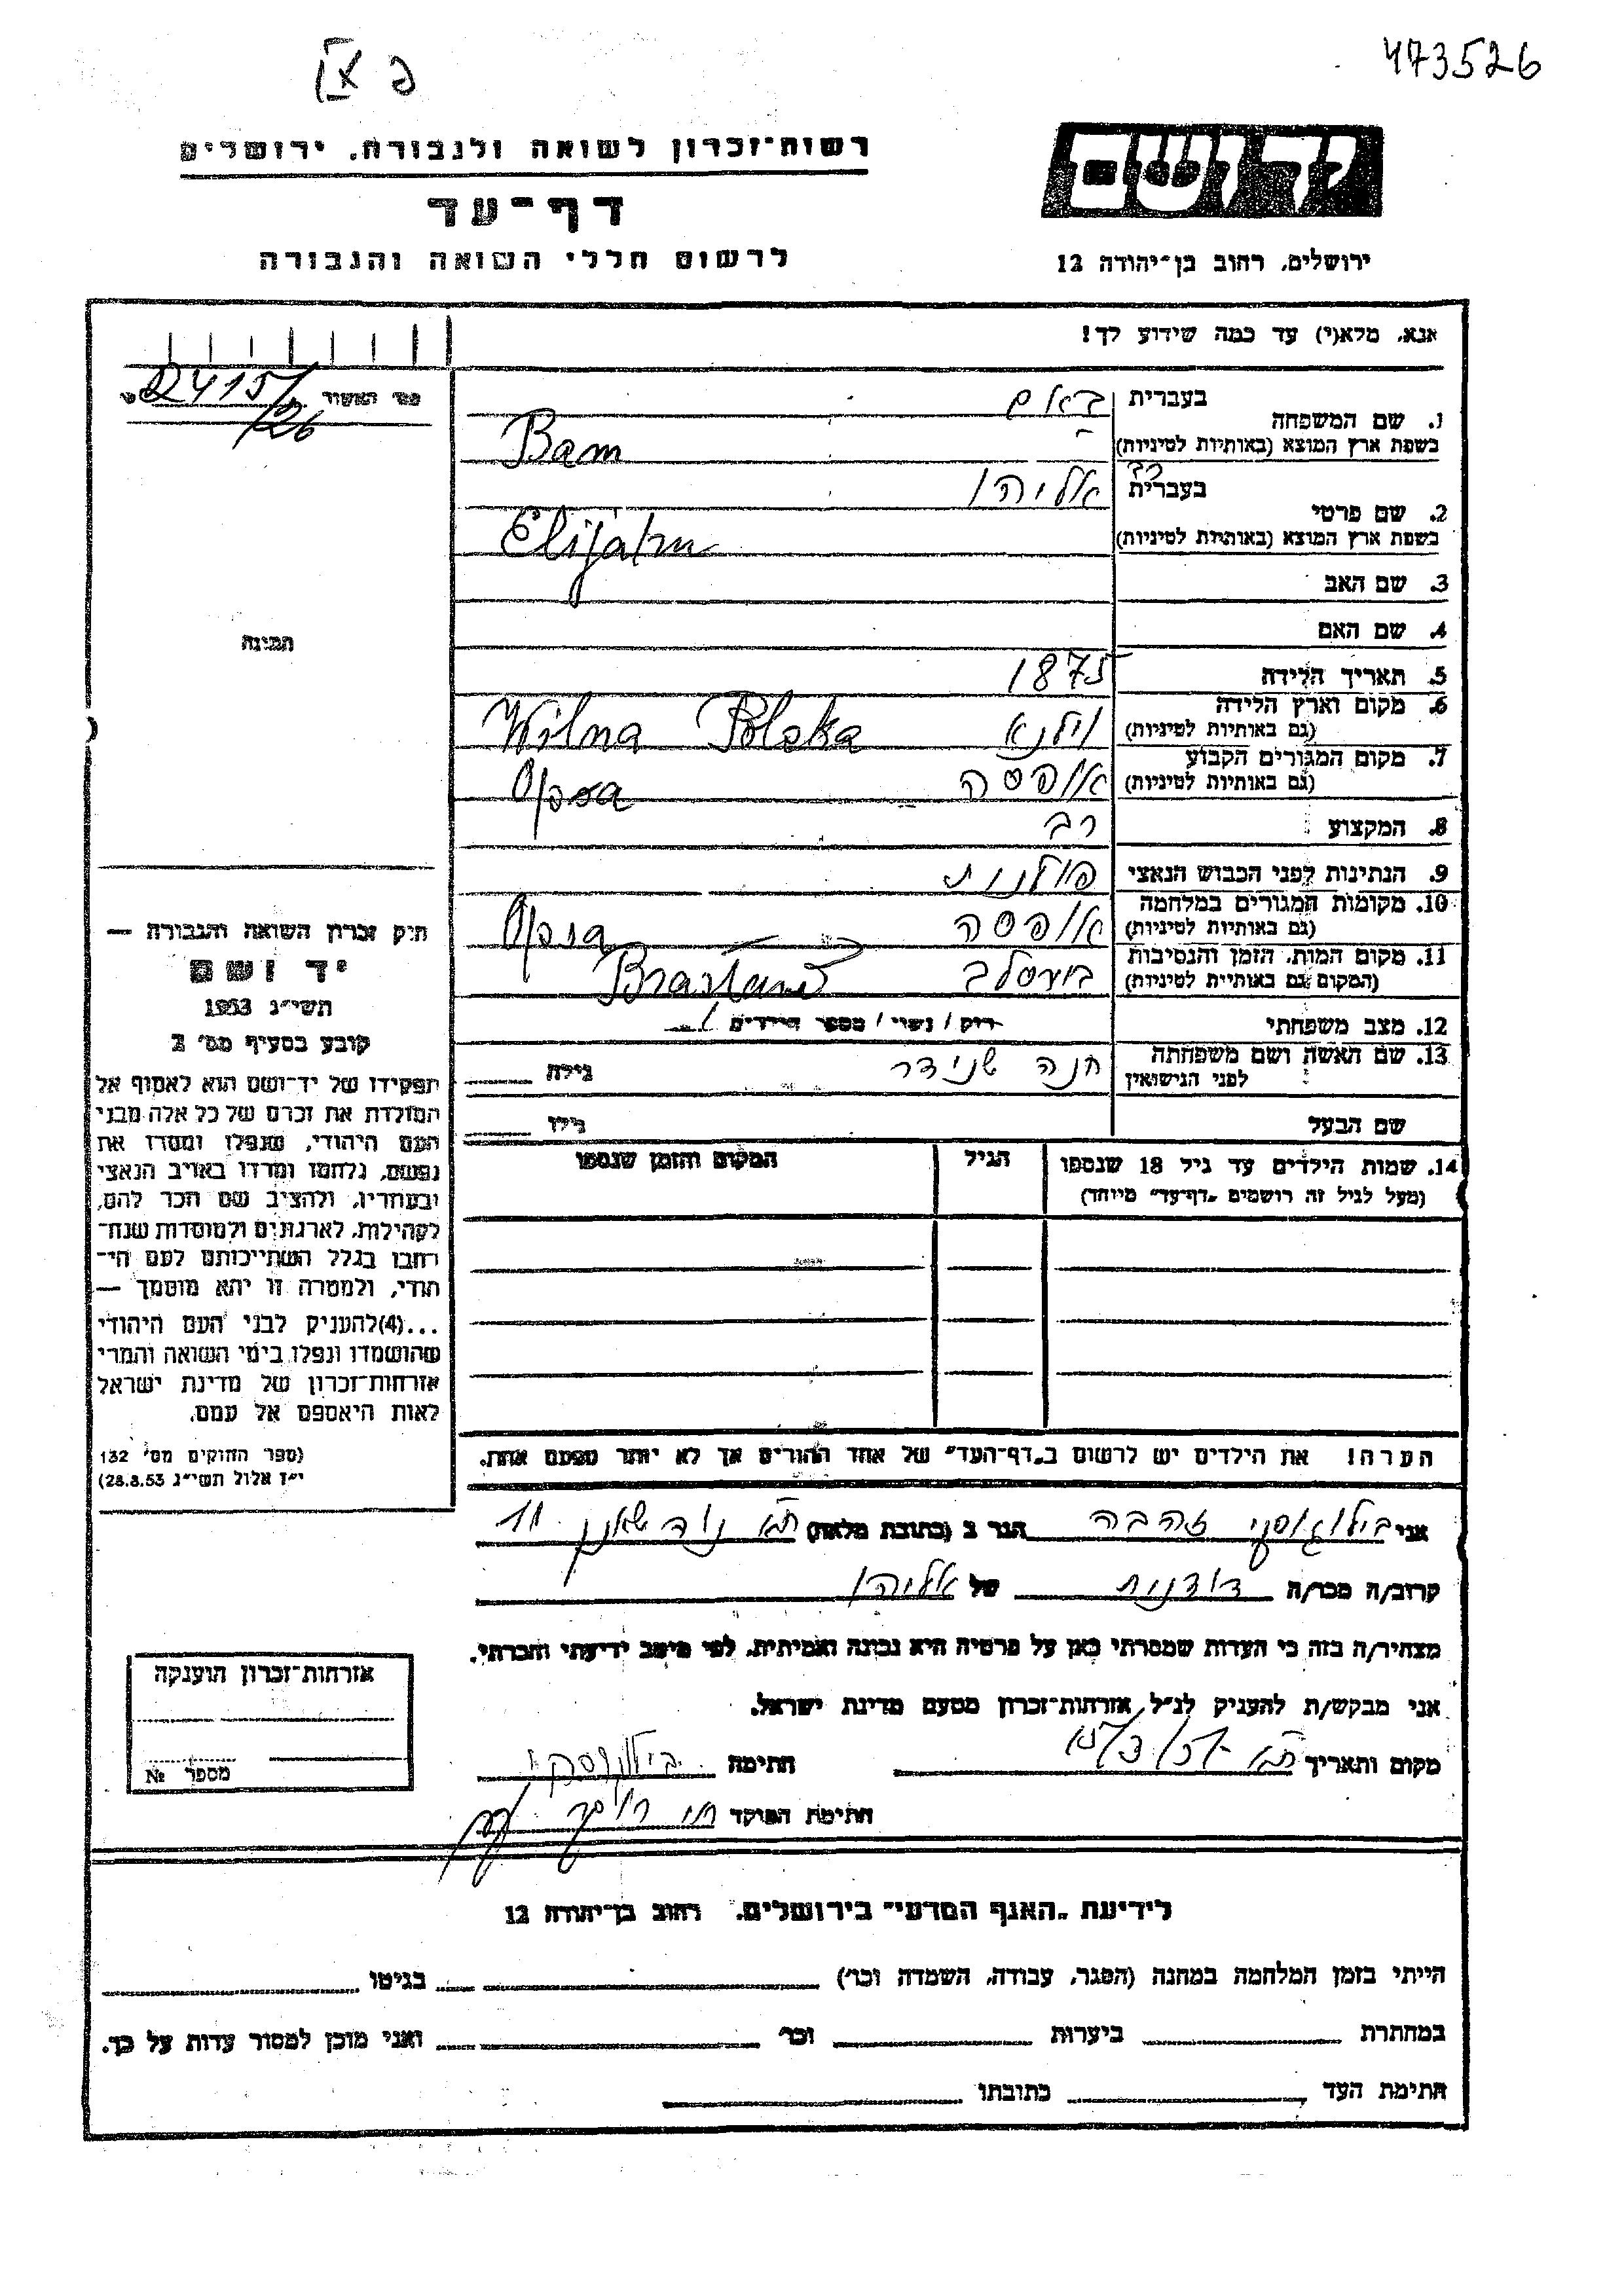 473526
רשות־זכרון לשואה ולגבורה, ירושלים
דף־עד
לרשום חללי השואה והגבורה
ירושלים, רחוב בן־יהודה 12
אנא, מלא(י) עד כמה שידוע לך!
24151/26
1. שם המשפחה
בעברית באם
בשפת ארץ המוצא (באותיות לטיניות) Bam
2. שם פרטי
בעברית רב אליהו
בשפת ארץ המוצא (באותיות לטיניות) Elijahu
3. שם האב
4. שם האם
תמונה
5. תאריך הלידה 1875
6. מקום וארץ הלידה (גם באותיות לטיניות) וילנא Wilna Polska
7. מקום המגורים הקבוע (גם באותיות לטיניות) אופסה Opsa
8. המקצוע רב
9. הנתינות לפני הכבוש הנאצי פולנית
10. מקומות המגורים במלחמה (גם באותיות לטיניות) אופסה Opsa
11. מקום המות, הזמן והנסיבות (המקום גם באותיות לטיניות)
12. מצב משפחתי רוק / נשוי / מספר הילדים
13. שם האשה ושם משפחתה לפני הנישואין חנה שנידר גילה
שם הבעל גילו
14. שמות הילדים עד גיל 18 שנספו (מעל לגיל זה רושמים „דף־עד" מיוחד) הגיל המקום והזמן שנספו
הערה! את הילדים יש לרשום ב„דף־העד" של אחד ההורים אך לא יותר מפעם אחת.
חוק זכרון השואה והגבורה —
יד ושם
תשי״ג 1953
קובע בסעיף מס׳ 2
תפקידו של יד־ושם הוא לאסוף אל
המולדת את זכרם של כל אלה מבני
העם היהודי, שנפלו ומסרו את
נפשם, נלחמו ומרדו באויב הנאצי
ובעוזריו, ולהציב שם וזכר להם,
לקהילות, לארגונים ולמוסדות שנח־
רבו בגלל השתייכותם לעם הי־
הודי, ולמטרה זו יהא מוסמך —
...(4)להעניק לבני העם היהודי
שהושמדו ונפלו בימי השואה והמרי
אזרחות־זכרון של מדינת ישראל
לאות היאספם אל עמם.
(ספר החוקים מס׳ 132
י״ז אלול תשי״ג 28.8.53)
אני זהבה הגר ב (כתובת מלאה) ת״א נוה שאנן 11
קרוב/ה מכר/ה דודנית של אליהו
מצהיר/ה בזה כי העדות שמסרתי כאן על פרטיה היא נכונה ואמיתית, לפי מיטב ידיעתי והכרתי.
אני מבקש/ת להעניק לנ״ל אזרחות־זכרון מטעם מדינת ישראל.
מקום ותאריך ת״א חתימה
חתימת הפוקד
אזרחות־זכרון הוענקה
מספר №
לידיעת „האגף המדעי" בירושלים, רחוב בן־יהודה 12
הייתי בזמן המלחמה במחנה (הסגר, עבודה, השמדה וכו׳) בגיטו
במחתרת ביערות וכו׳ ואני מוכן למסור עדות על כך.
חתימת העד כתובתו